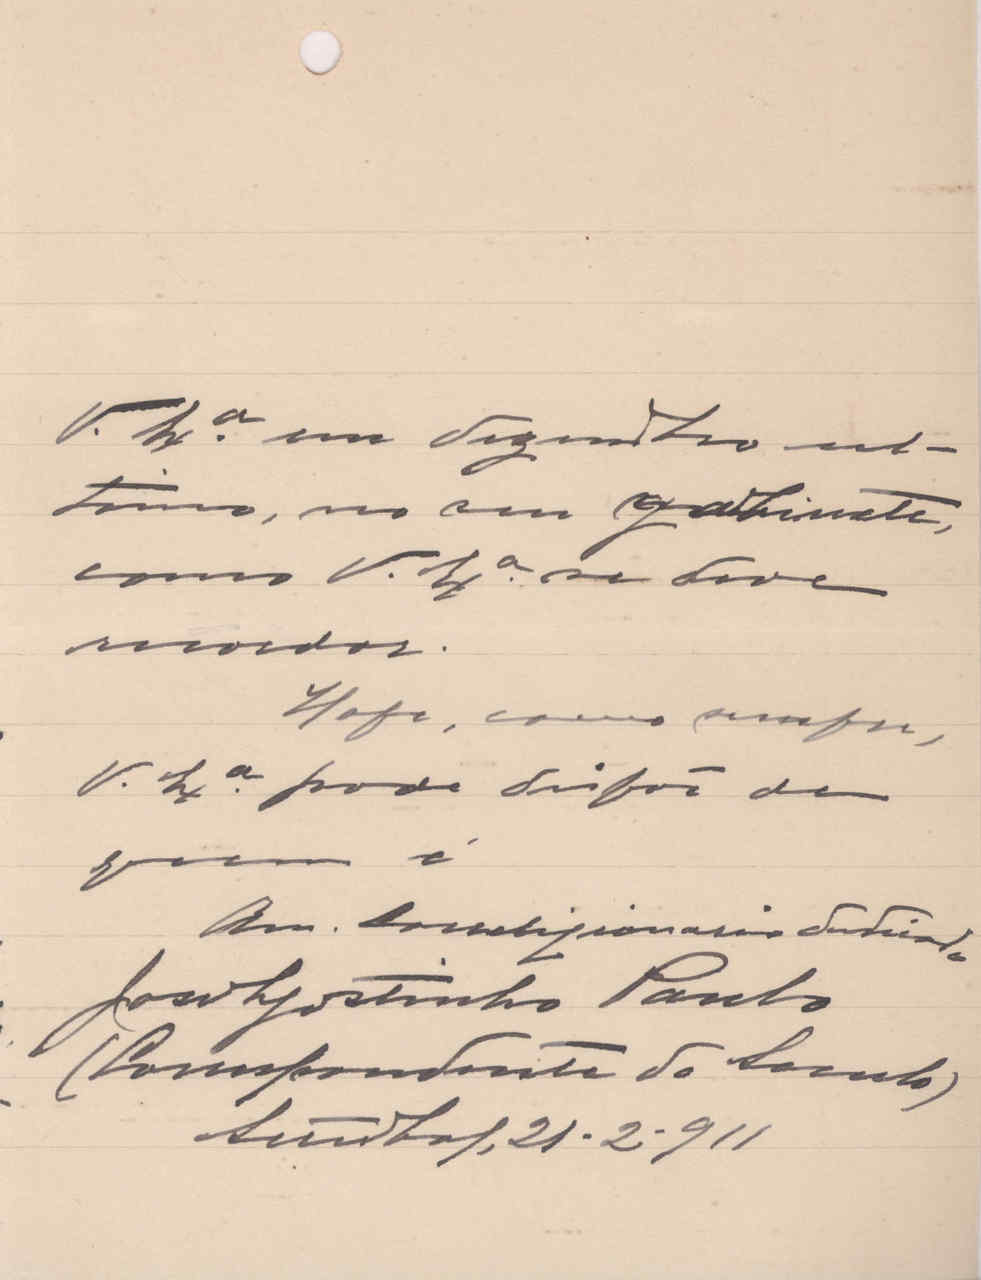 V. Exª. em dezembro ul-
timo, no seu gabinete,
como V. Exª. se deve
recordar.
Hoje, como sempre,
V. Exª. pode dispôr de
quem é
Am. Correligionario dedicado
José Agostinho Paulo
(Correspondente do Seculo)
Setubal, 21-2-911